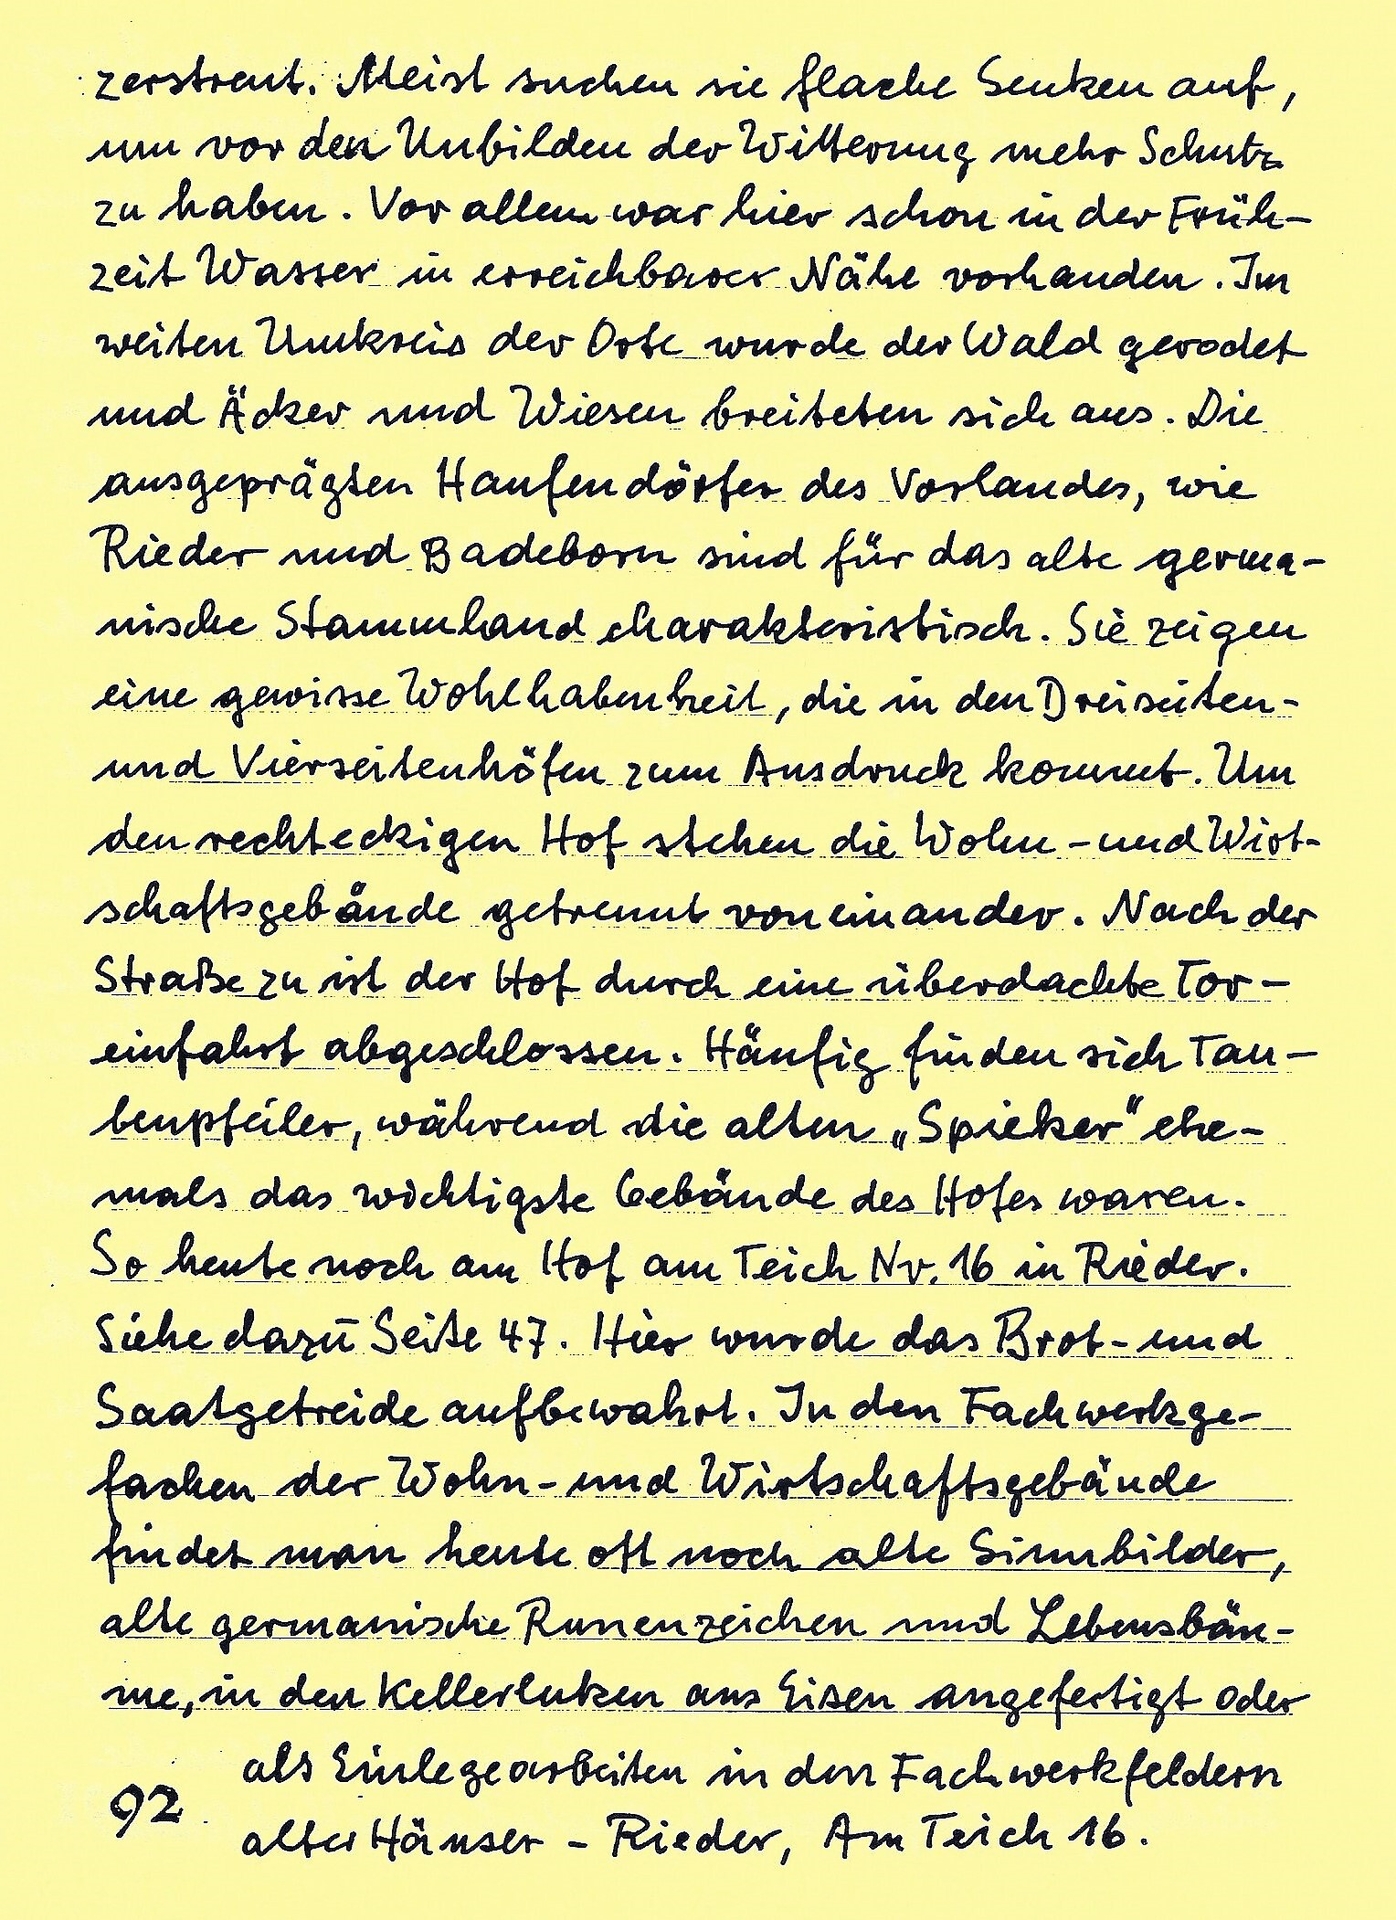 zerstreut. Meist suchen sie flache Senken auf,
um vor den Unbilden der Witterung mehr Schutz
zu haben. Vor allem war hier schon in der Früh-
zeit Wasser in erreichbarer Nähe vorhanden. Im
weiten Umkreis der Orte wurde der Wald gerodet
und Äcker und Wiesen breiteten sich aus. Die
ausgeprägten Haufendörfer des Vorlandes, wie
Rieder und Badeborn sind für das alte germa-
nische Stammland charakteristisch. Sie zeigen
eine gewisse Wohlhabenheit, die in den Dreiseiten-
und Vierseitenhöfen zum Ausdruck kommt. Um
den rechteckigen Hof stehen die Wohn- und Wirt-
schaftsgebäude getrennt voneinander. Nach der
Straße zu ist der Hof durch eine überdachte Tor-
einfahrt abgeschlossen. Häufig finden sich Tau-
benpfeiler, während die alten „Spieker" ehe-
mals das wichtigste Gebäude des Hofes waren.
So heute noch am Hof am Teich Nr. 16 in Rieder.
Siehe dazu Seite 47. Hier wurde das Brot- und
Saatgetreide aufbewahrt. In den Fachwerkge-
fachen der Wohn- und Wirtschaftsgebäude
findet man heute oft noch alte Sinnbilder,
alte germanische Runenzeichen und Lebensbäu-
me, in den Kellerluken aus Eisen angefertigt oder
als Einlegearbeiten in den Fachwerkfeldern
alter Häuser - Rieder, Am Teich 16.
92